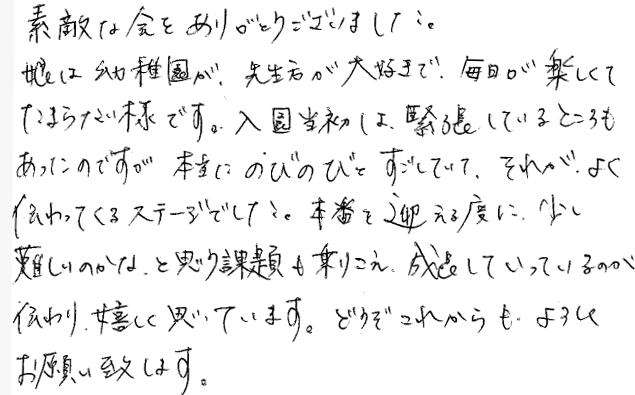 素敵な会をありがとうございました。
娘は幼稚園が、先生方が大好きで、毎日が楽しくて
たまらない様です。入園当初は、緊張しているところも
あったのですが本当にのびのびとすごしていて、それが、よく
伝わってくるステージでした。本番を迎える度に、少し
難しいのかな、と思う課題も乗りこえ、成長していっているのが
伝わり、嬉しく思っています。どうぞこれからも、よろしく
お願い致します。